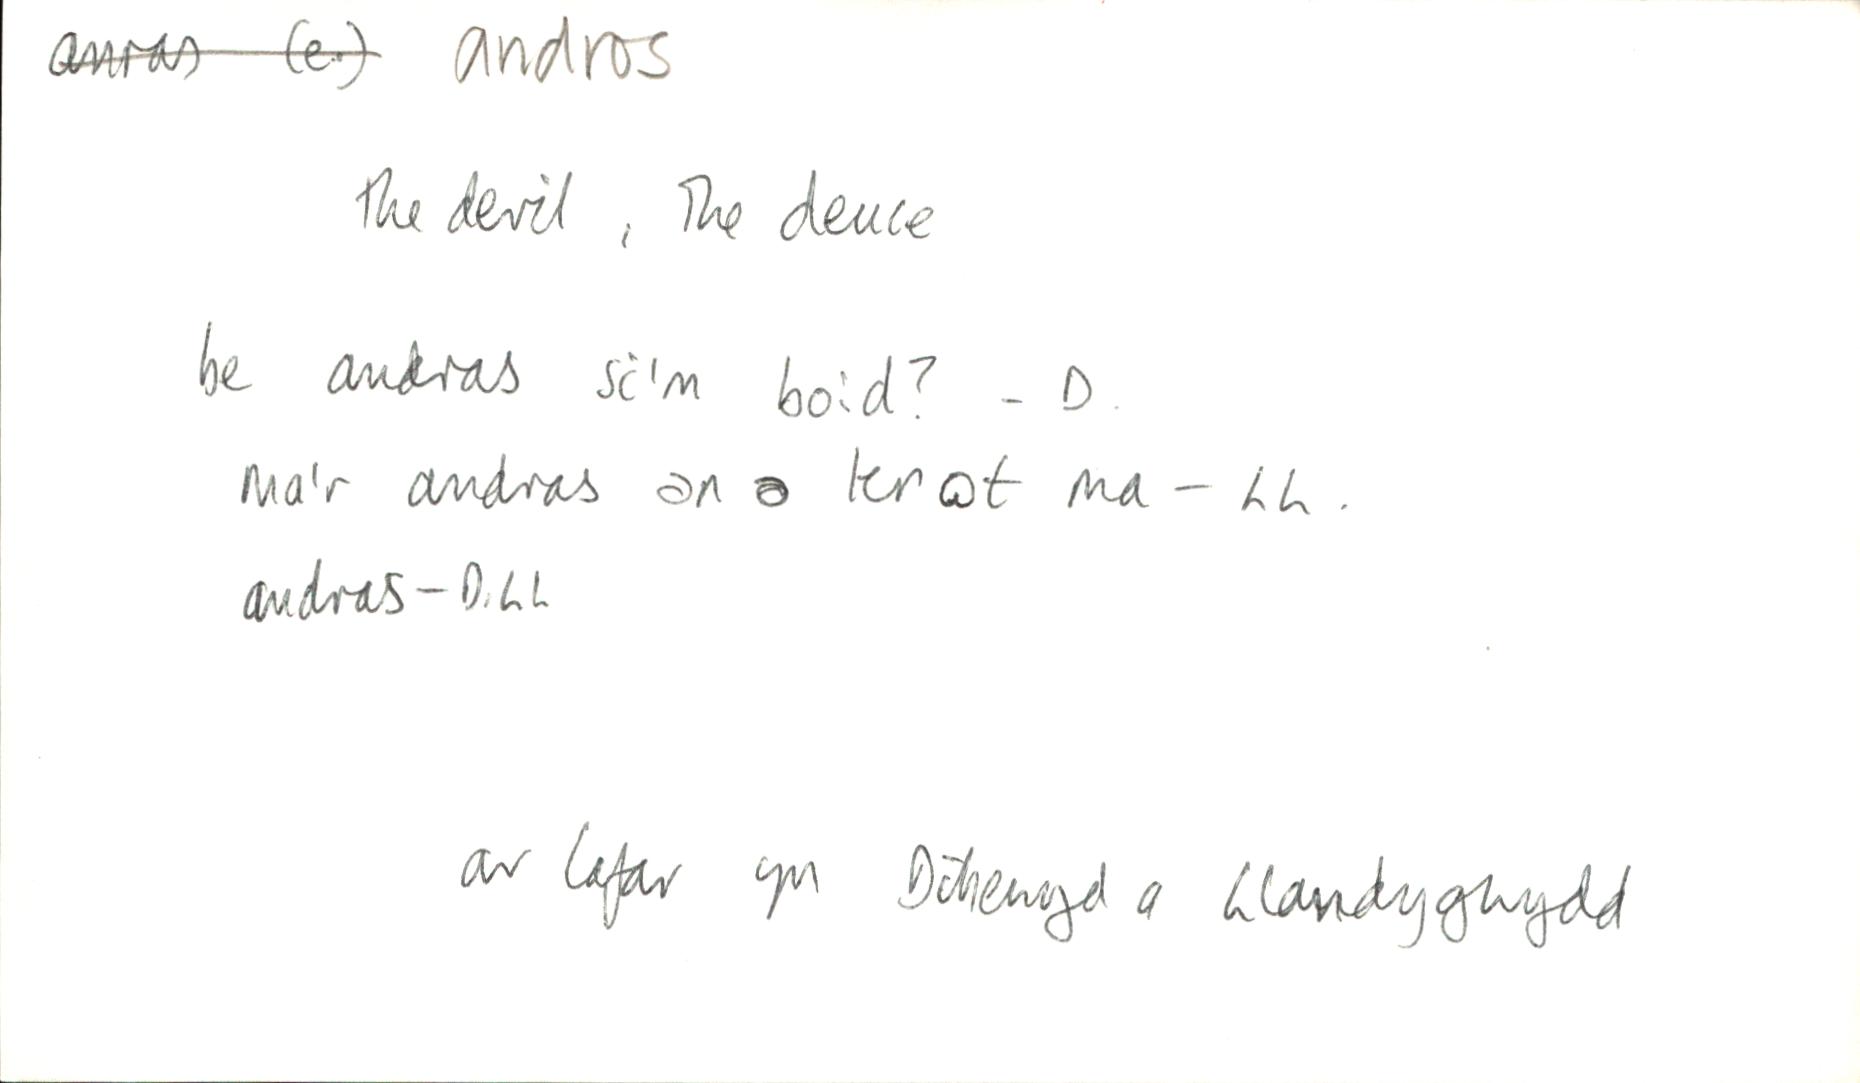 anras (e.) andros
the devil, The deuce
be andras si'n bo:d? - D.
ma'r andras ən ə krɷt ma - LL.
andras - D. LL
ar lafar yn Dihewyd a Llandygwydd